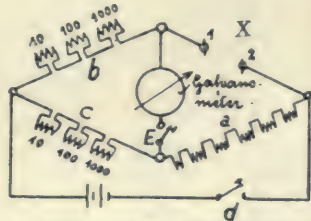 10 100 1000
X
1
2
b
Galvano-
meter
c
E
a
10 100 1000
d